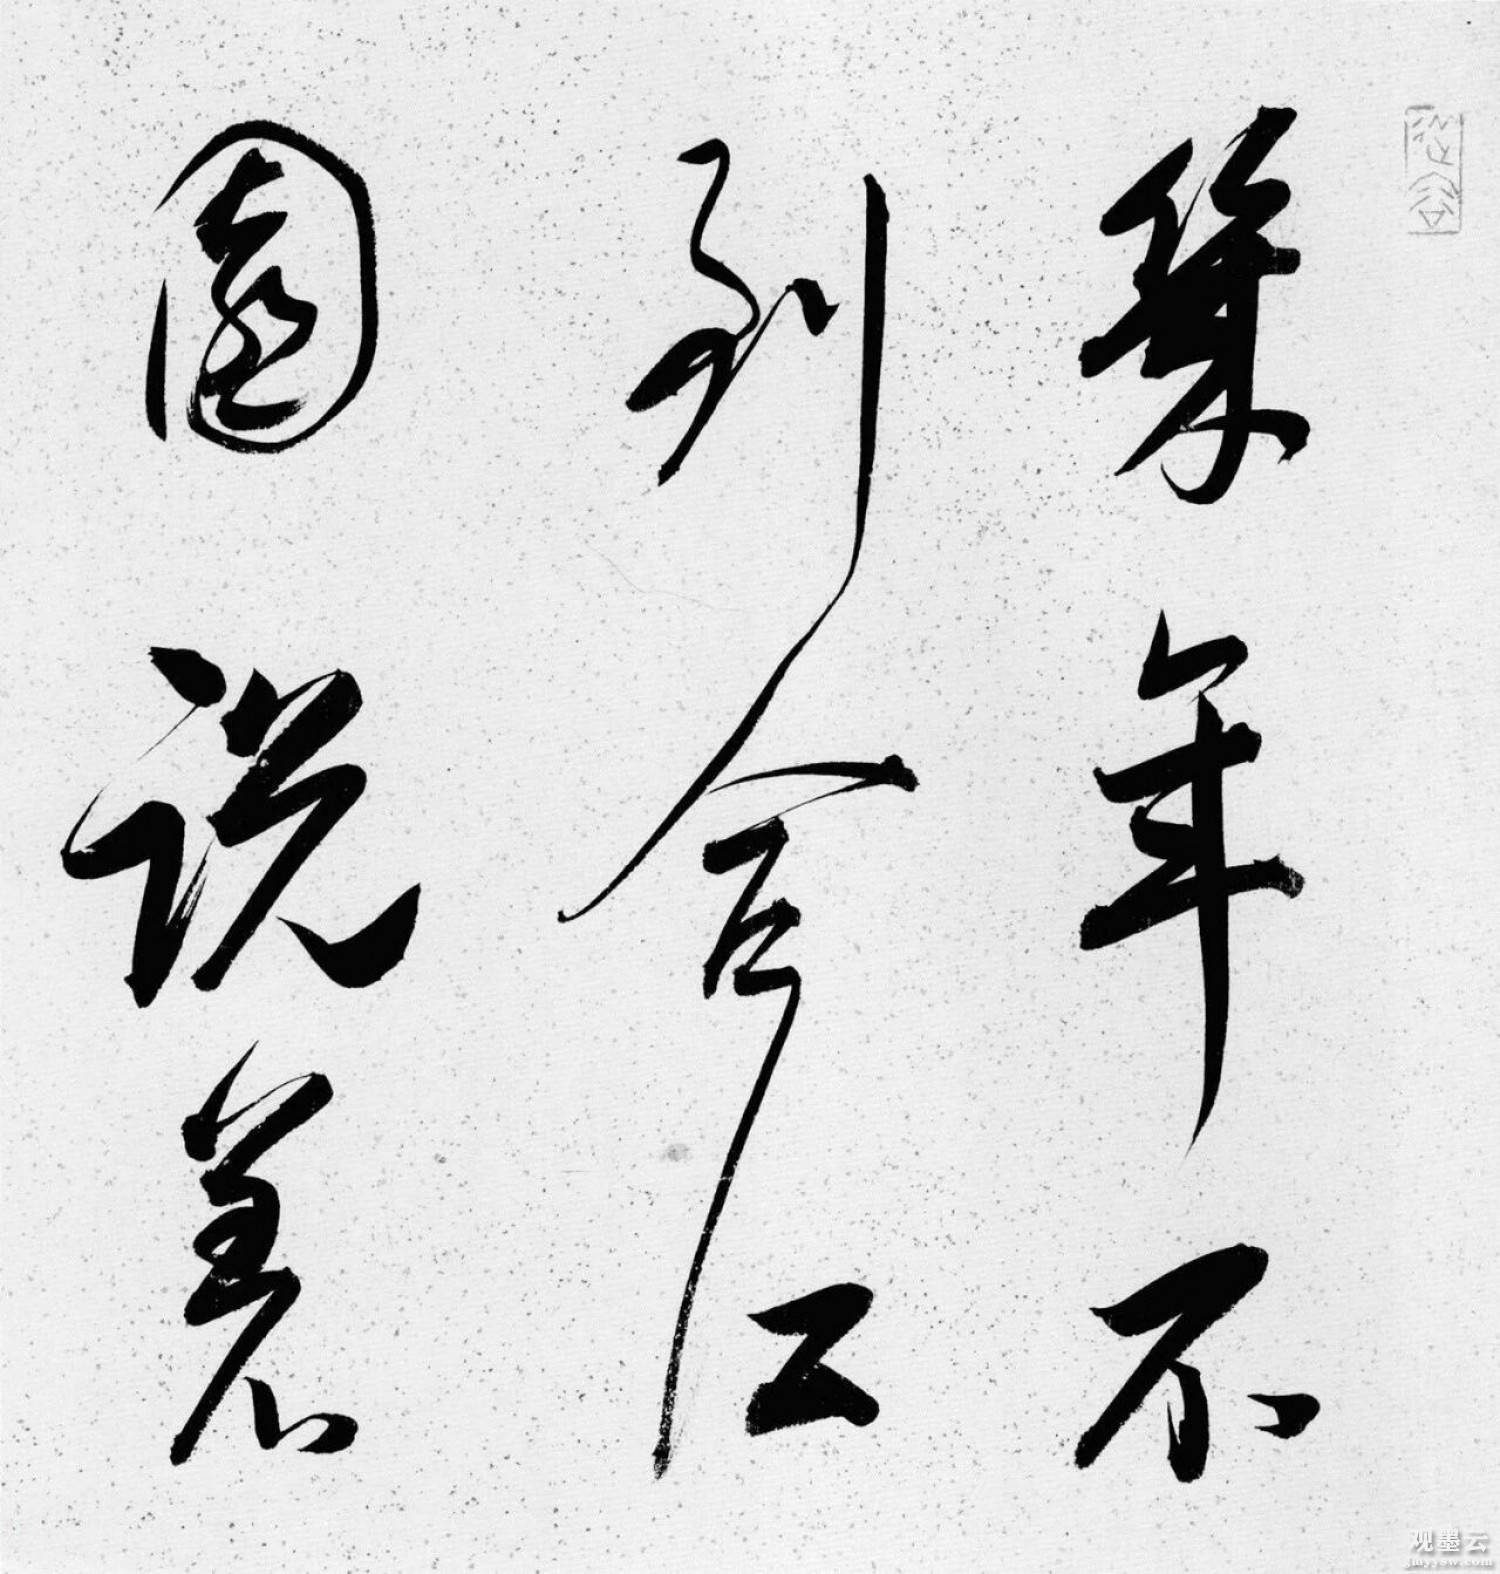 幾年不
到合江
園説着
观墨云
jmyysw.com